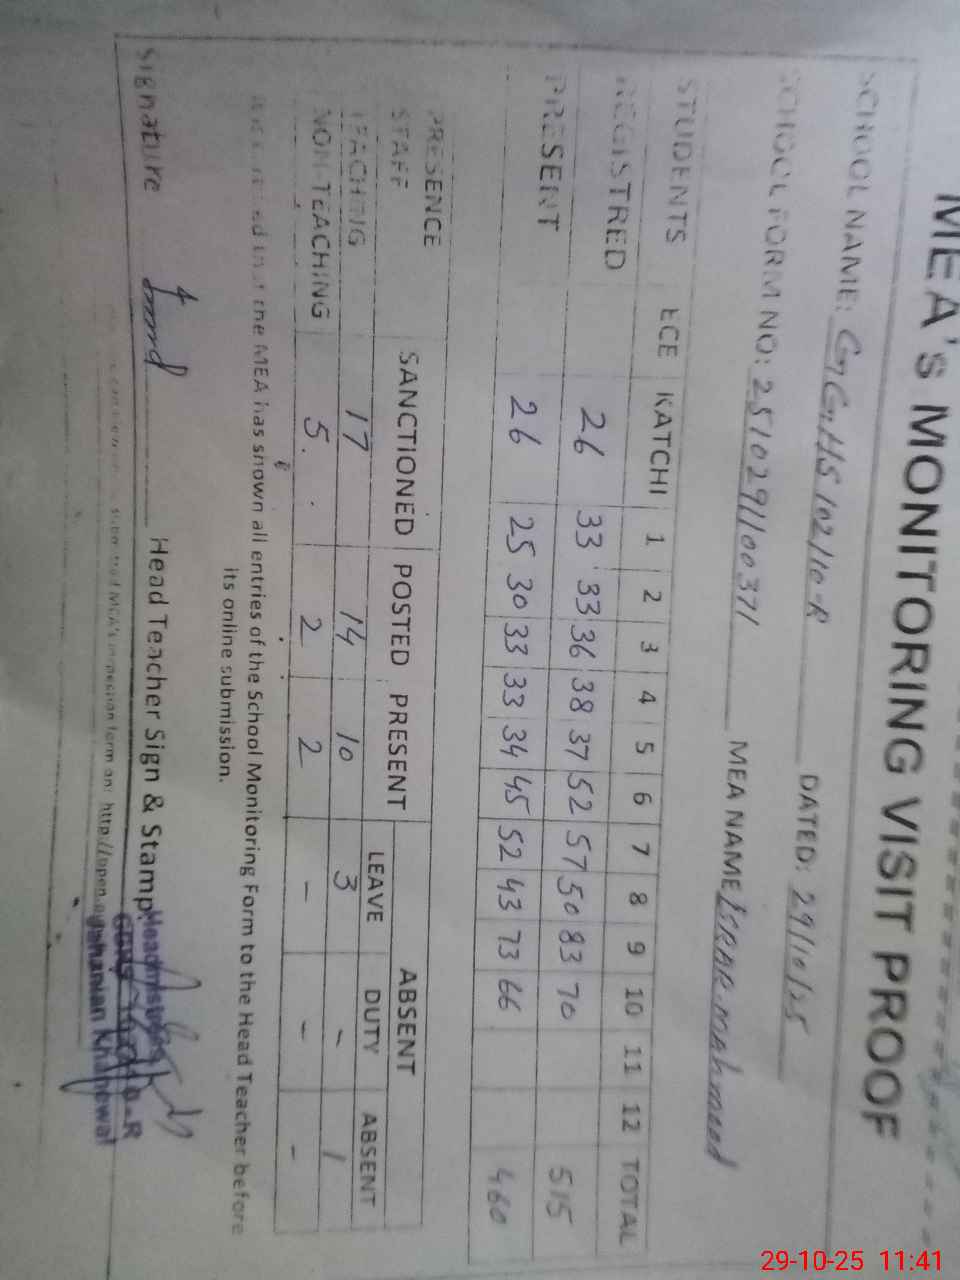 MEA's MONITORING VISIT PROOF
SCHOOL NAME: GGHS 102/10-R DATED: 29/10/25
SCHOOL FORM NO: 2510291100371 MEA NAME ISRAR Mahmood
STUDENTS ECE KATCHI 1 2 3 4 5 6 7 8 9 10 11 12 TOTAL
REGISTRED 26 33 33 36 38 37 52 57 50 83 70 515
PRESENT 26 25 30 33 33 34 45 52 43 73 66 460
PRESENCE
STAFF SANCTIONED POSTED PRESENT ABSENT
LEAVE DUTY ABSENT
TEACHING 17 14 10 3 - 1
NON-TEACHING 5. 2 2 - - -
that the MEA has shown all entries of the School Monitoring Form to the Head Teacher before
its online submission.
Signature Head Teacher Sign & Stamp
Headmistress
Jahanian Khanewal
submitted MEA's inspection form http://open.
29-10-25 11:41